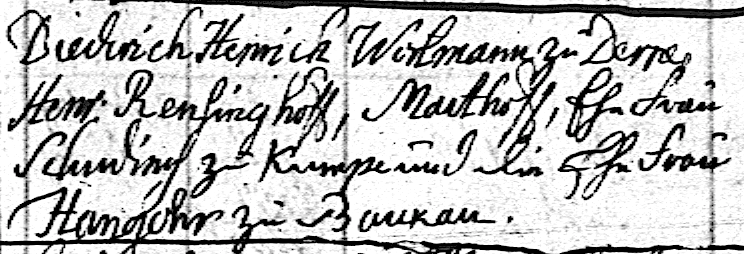 Diedrich Henrich Wortmann zu Derne,
Henr. Rensinghoff, Marthoff, Ehefrau
Schuding zu Kumpe und die Ehefrau
Hangohr zu Baukau.